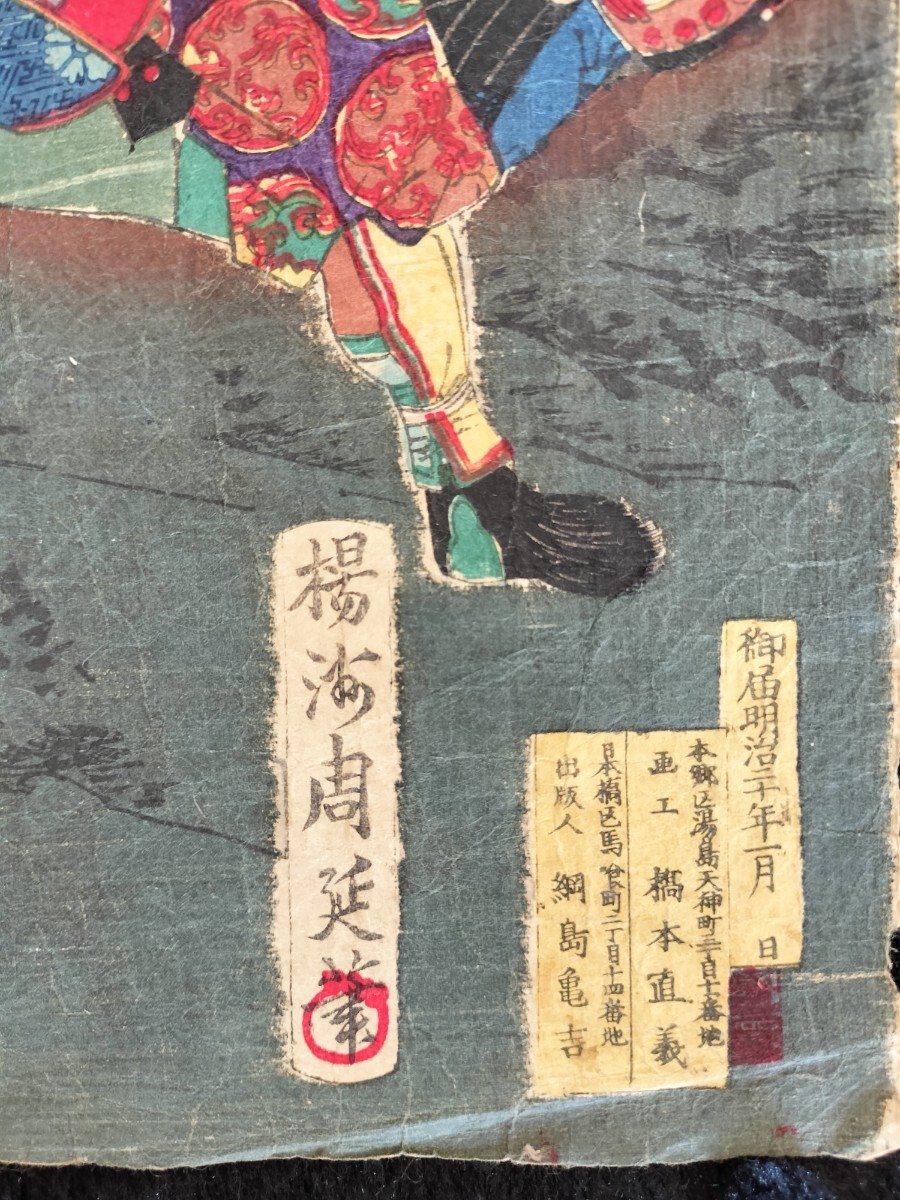 御届明治二十年一月　日
本郷区湯島天神町三丁目十番地
画工　橋本直義
日本橋区馬喰町二丁目十四番地
出版人　綱島亀吉
楊洲周延筆